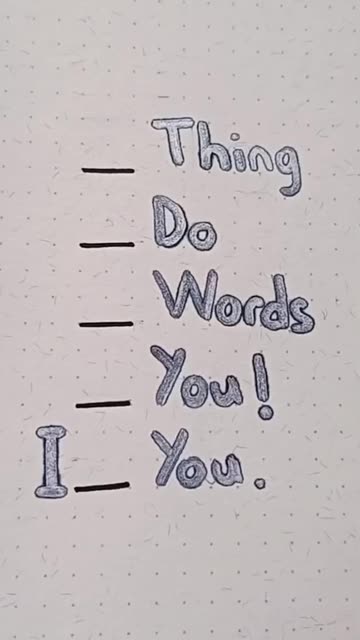 __ Thing
__ Do
__ Words
__ You!
I __ You.